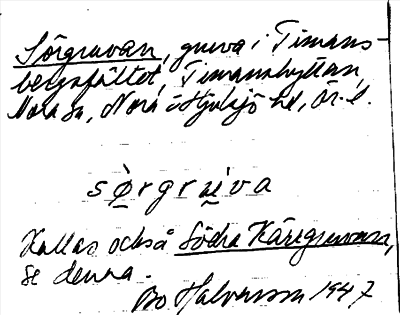 Sörgruvan, gruva i Timans-
bergsfältet, Timanshyttan,
Nora sn, Nora o Hjulsjö hd, Ör. l.
sø̀rgrʉ̀va
Kallas också Södra Kärrgruvan,
se denna.
Bo Halvarsson 1947